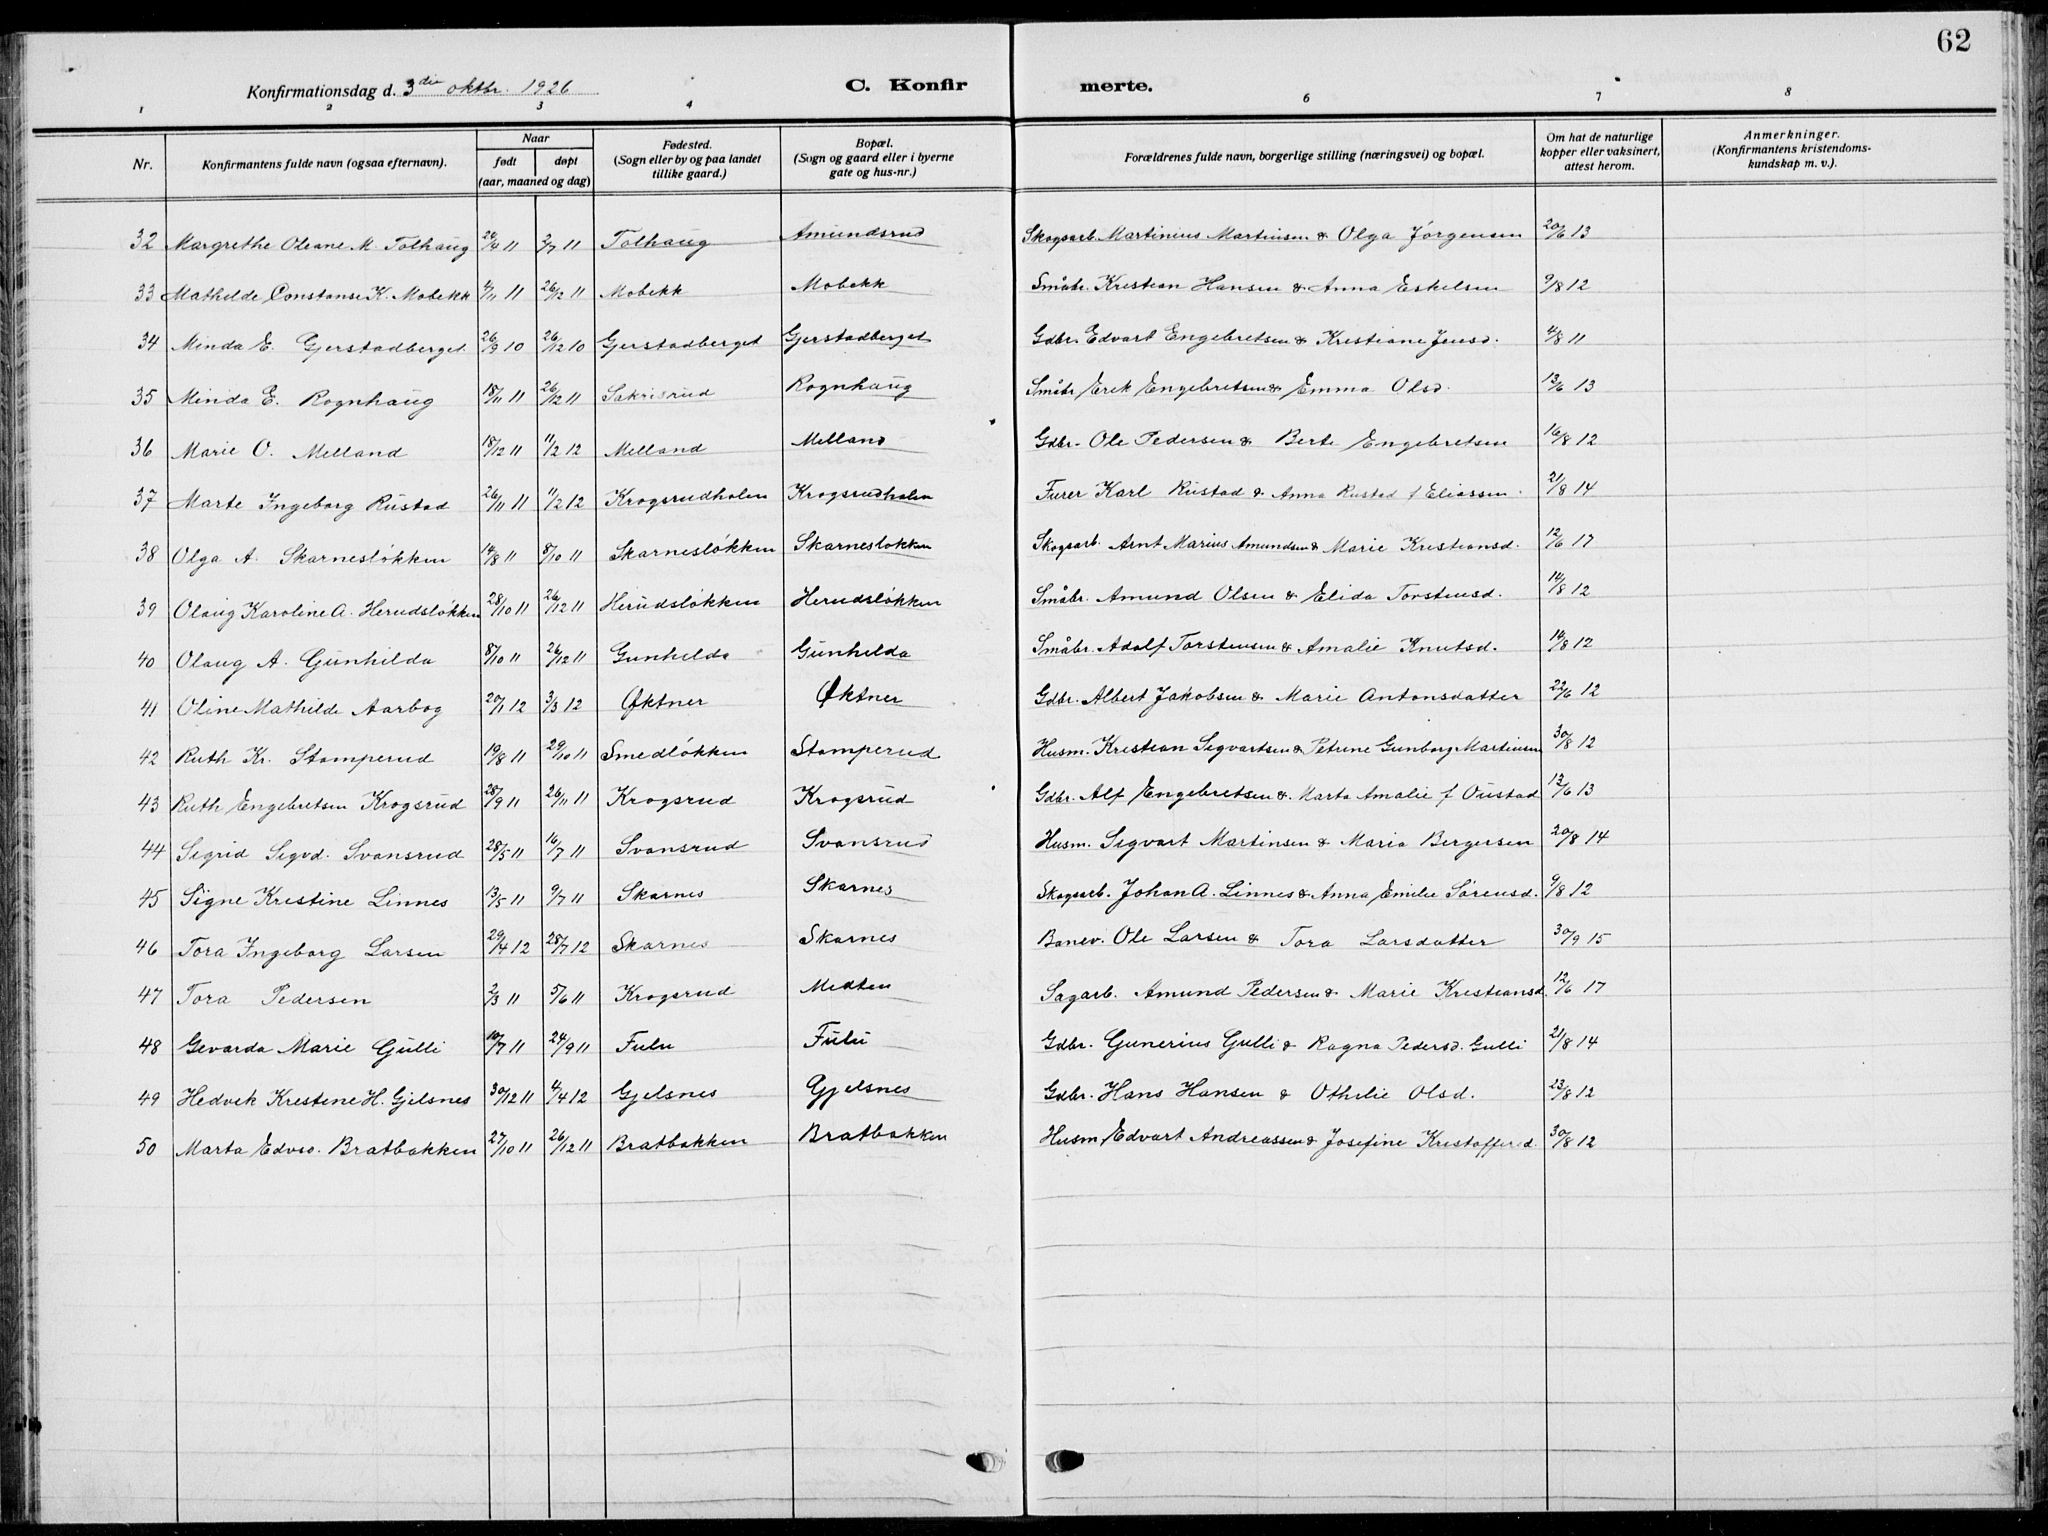 62
Konfirmationsdag d. 3die oktbr. 1926 C. Konfir merte.
1 2 3 4 6 7 8
Nr. Konfirmantens fulde navn (ogsaa efternavn). Naar født døpt (aar, maaned og dag) Fødested. (Sogn eller by og paa landet tillike gaard.) Bopæl. (Sogn og gaard eller i byerne gate og hus-nr.) Forældrenes fulde navn, borgerlige stilling (næringsvei) og bopæl. Om hat de naturlige kopper eller vaksinert, attest herom. Anmerkninger. (Konfirmantens kristendoms-kundskap m. v.).
32 Margrethe Oleane M. Tolhaug 11 2/7 11 Tolhaug Amundsrud Skogsarb. Martinius Martinsen & Olga Jørgensen 20/6 13
33 Mathilde Constanse K. Mobekk 4/11 11 26/12 11 Mobekk Mobekk Småbr. Kristian Hansen & Anna Eskelsen 9/8 12
34 Minda E. Gjerstadberget 26/9 10 26/12 10 Gjerstadberget Gjerstadberget Gdbr. Edvart Engebretsen & Kristiane Jensd. 4/8 11
35 Minda E. Rognhaug 18/11 11 26/12 11 Sakrisrud Rognhaug Småbr. Erik Engebretsen & Emma Olsd. 13/6 13
36 Marie O. Melland 18/12 11 11/2 12 Melland Melland Gdbr. Ole Pedersen & Berte Engebretsen 16/8 12
37 Marte Ingeborg Rustad 26/11 11 11/2 12 Krogsrudholen Krogsrudholen Furer Karl Rustad & Anna Rustad f Eliassen. 21/8 14
38 Olga A. Skarnesløkken 14/8 11 8/10 11 Skarnesløkken Skarnesløkken Skogsarb. Arnt Marius Amundsen & Marie Kristiansd. 12/6 17
39 Olaug Karoline A. Herudsløkken 28/10 11 26/12 11 Herudsløkken Herudsløkken Småbr. Amund Olsen & Elida Torstensd. 14/8 12
40 Olaug A. Gunhilda 8/10 11 26/12 11 Gunhilda Gunhilda Småbr. Adolf Torstensen & Amalie Knutsd. 14/8 12
41 Oline Mathilde Aarbog 20/1 12 3/3 12 Øktner Øktner Gdbr. Albert Jakobsen & Marie Antonsdatter 22/6 12
42 Ruth Kr. Stomperud 19/8 11 29/10 11 Smedløkken Stomperud Husm. Kristian Sigvartsen & Petrine Gunborg Martinsen 30/8 12
43 Ruth Engebretsen Krogsrud 28/9 11 26/11 11 Krogsrud Krogsrud Gdbr. Alf Engebretsen & Marta Amalie f Oustad 13/6 13
44 Sigrid Sigvd. Svansrud 28/5 11 16/7 11 Svansrud Svansrud Husm. Sigvart Martinsen & Maria Bergersen 20/8 14
45 Signe Kristine Linnes 13/5 11 9/7 11 Skarnes Skarnes Skogsarb. Johan A. Linnes & Anna Emilie Sørensd. 9/8 12
46 Tora Ingeborg Larsen 29/4 12 28/7 12 Skarnes Skarnes Banev. Ole Larsen & Tora Larsdatter 30/9 15
47 Tora Pedersen 2/3 11 5/6 11 Krogsrud Midten Sagarb. Amund Pedersen & Marie Kristiansd. 12/6 17
48 Gevarda Marie Gulli 10/7 11 24/9 11 Fulu Fulu Gdbr. Gunerius Gulli & Ragna Pedersd. Gulli 21/8 14
49 Hedvik Kristine H. Gjelsnes 30/12 11 4/4 12 Gjelsnes Gjelsnes Gdbr. Hans Hansen & Othilie Olsd. 23/8 12
50 Marta Bratbakken 27/10 11 26/12 11 Bratbakken Bratbakken Husm. Edvart Andreassen & Josefine Kristoffersd. 30/8 12